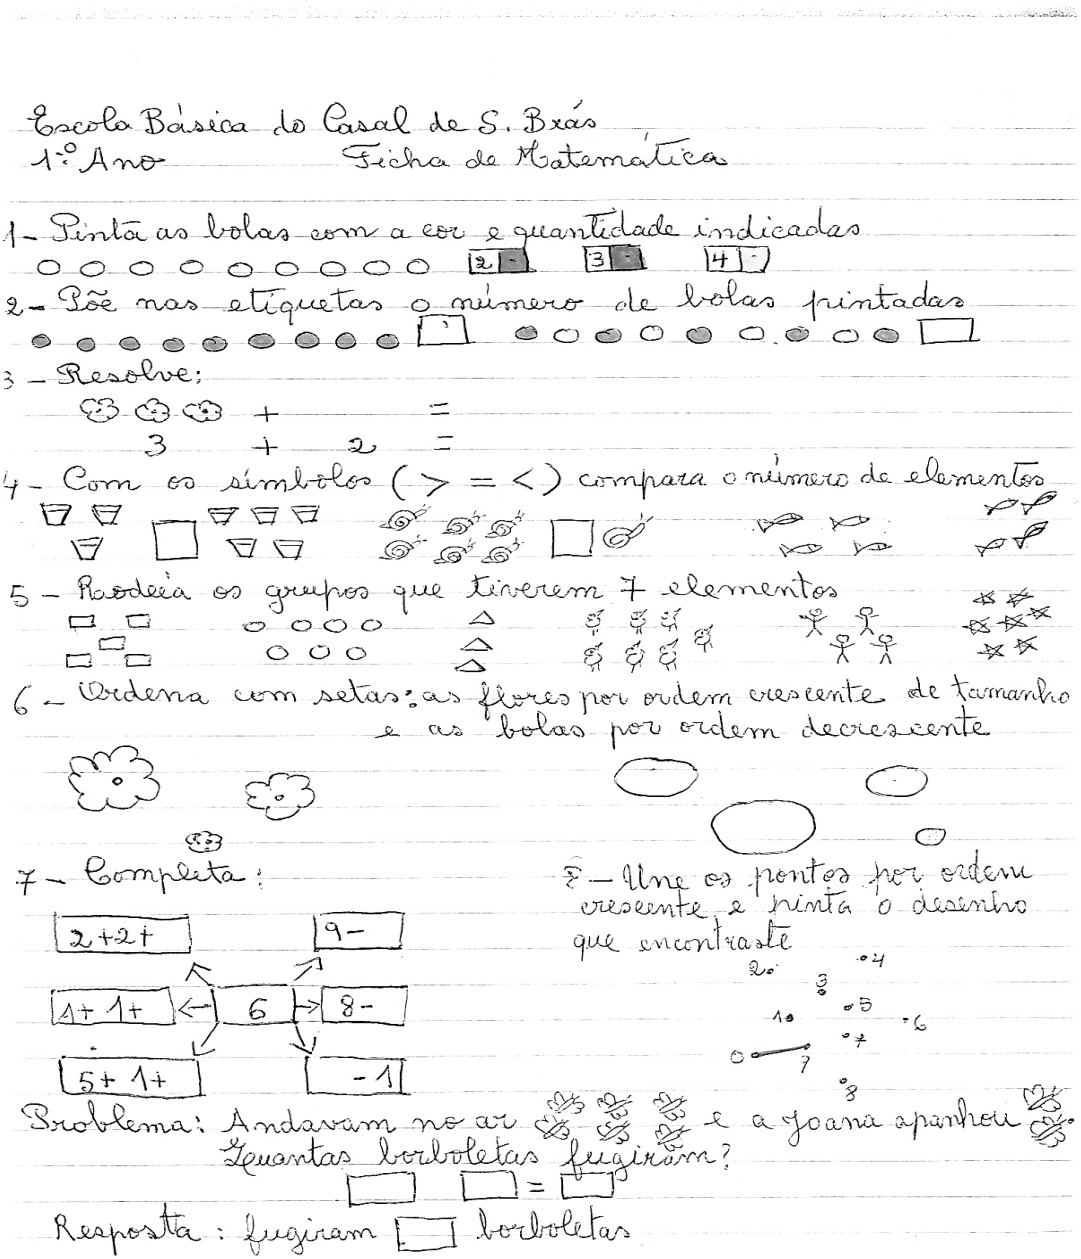 Escola Básica do Casal de S. Brás
1.º Ano Ficha de Matemática
1- Pinta as bolas com a cor e quantidade indicadas
2 3 4
2- Põe nas etiquetas o número de bolas pintadas
3 - Resolve:
+ =
3 + 2 =
4- Com os símbolos ( > = < ) compara o número de elementos
5 - Rodeia os grupos que tiverem 7 elementos
6 - Ordena com setas: as flores por ordem crescente de tamanho
e as bolas por ordem decrescente
7 - Completa:
2+2+ 9-
1+ 1+ 6 8-
5+ 1+ -1
8 - Une os pontos por ordem
crescente e pinta o desenho
que encontraste
2 4
3
1 5 6
0 7
9
8
Problema: Andavam no ar e a Joana apanhou
Quantas borboletas fugiram?
=
Resposta: fugiram borboletas